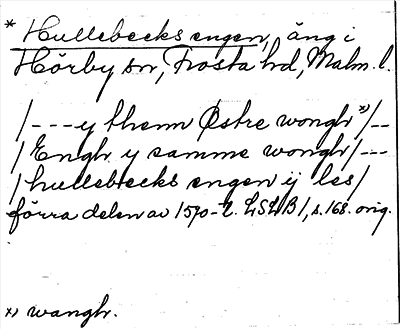 * Hullebecks engen, äng i
Hörby sn, Frosta hd, Malm. l.
/---y thenn Östre wongh x)/--
/Engh y samme wongh/---
/hullebecks engen ij les/
förra delen av 1570-t. LSLB 1, s. 168. orig.
x) wangh.